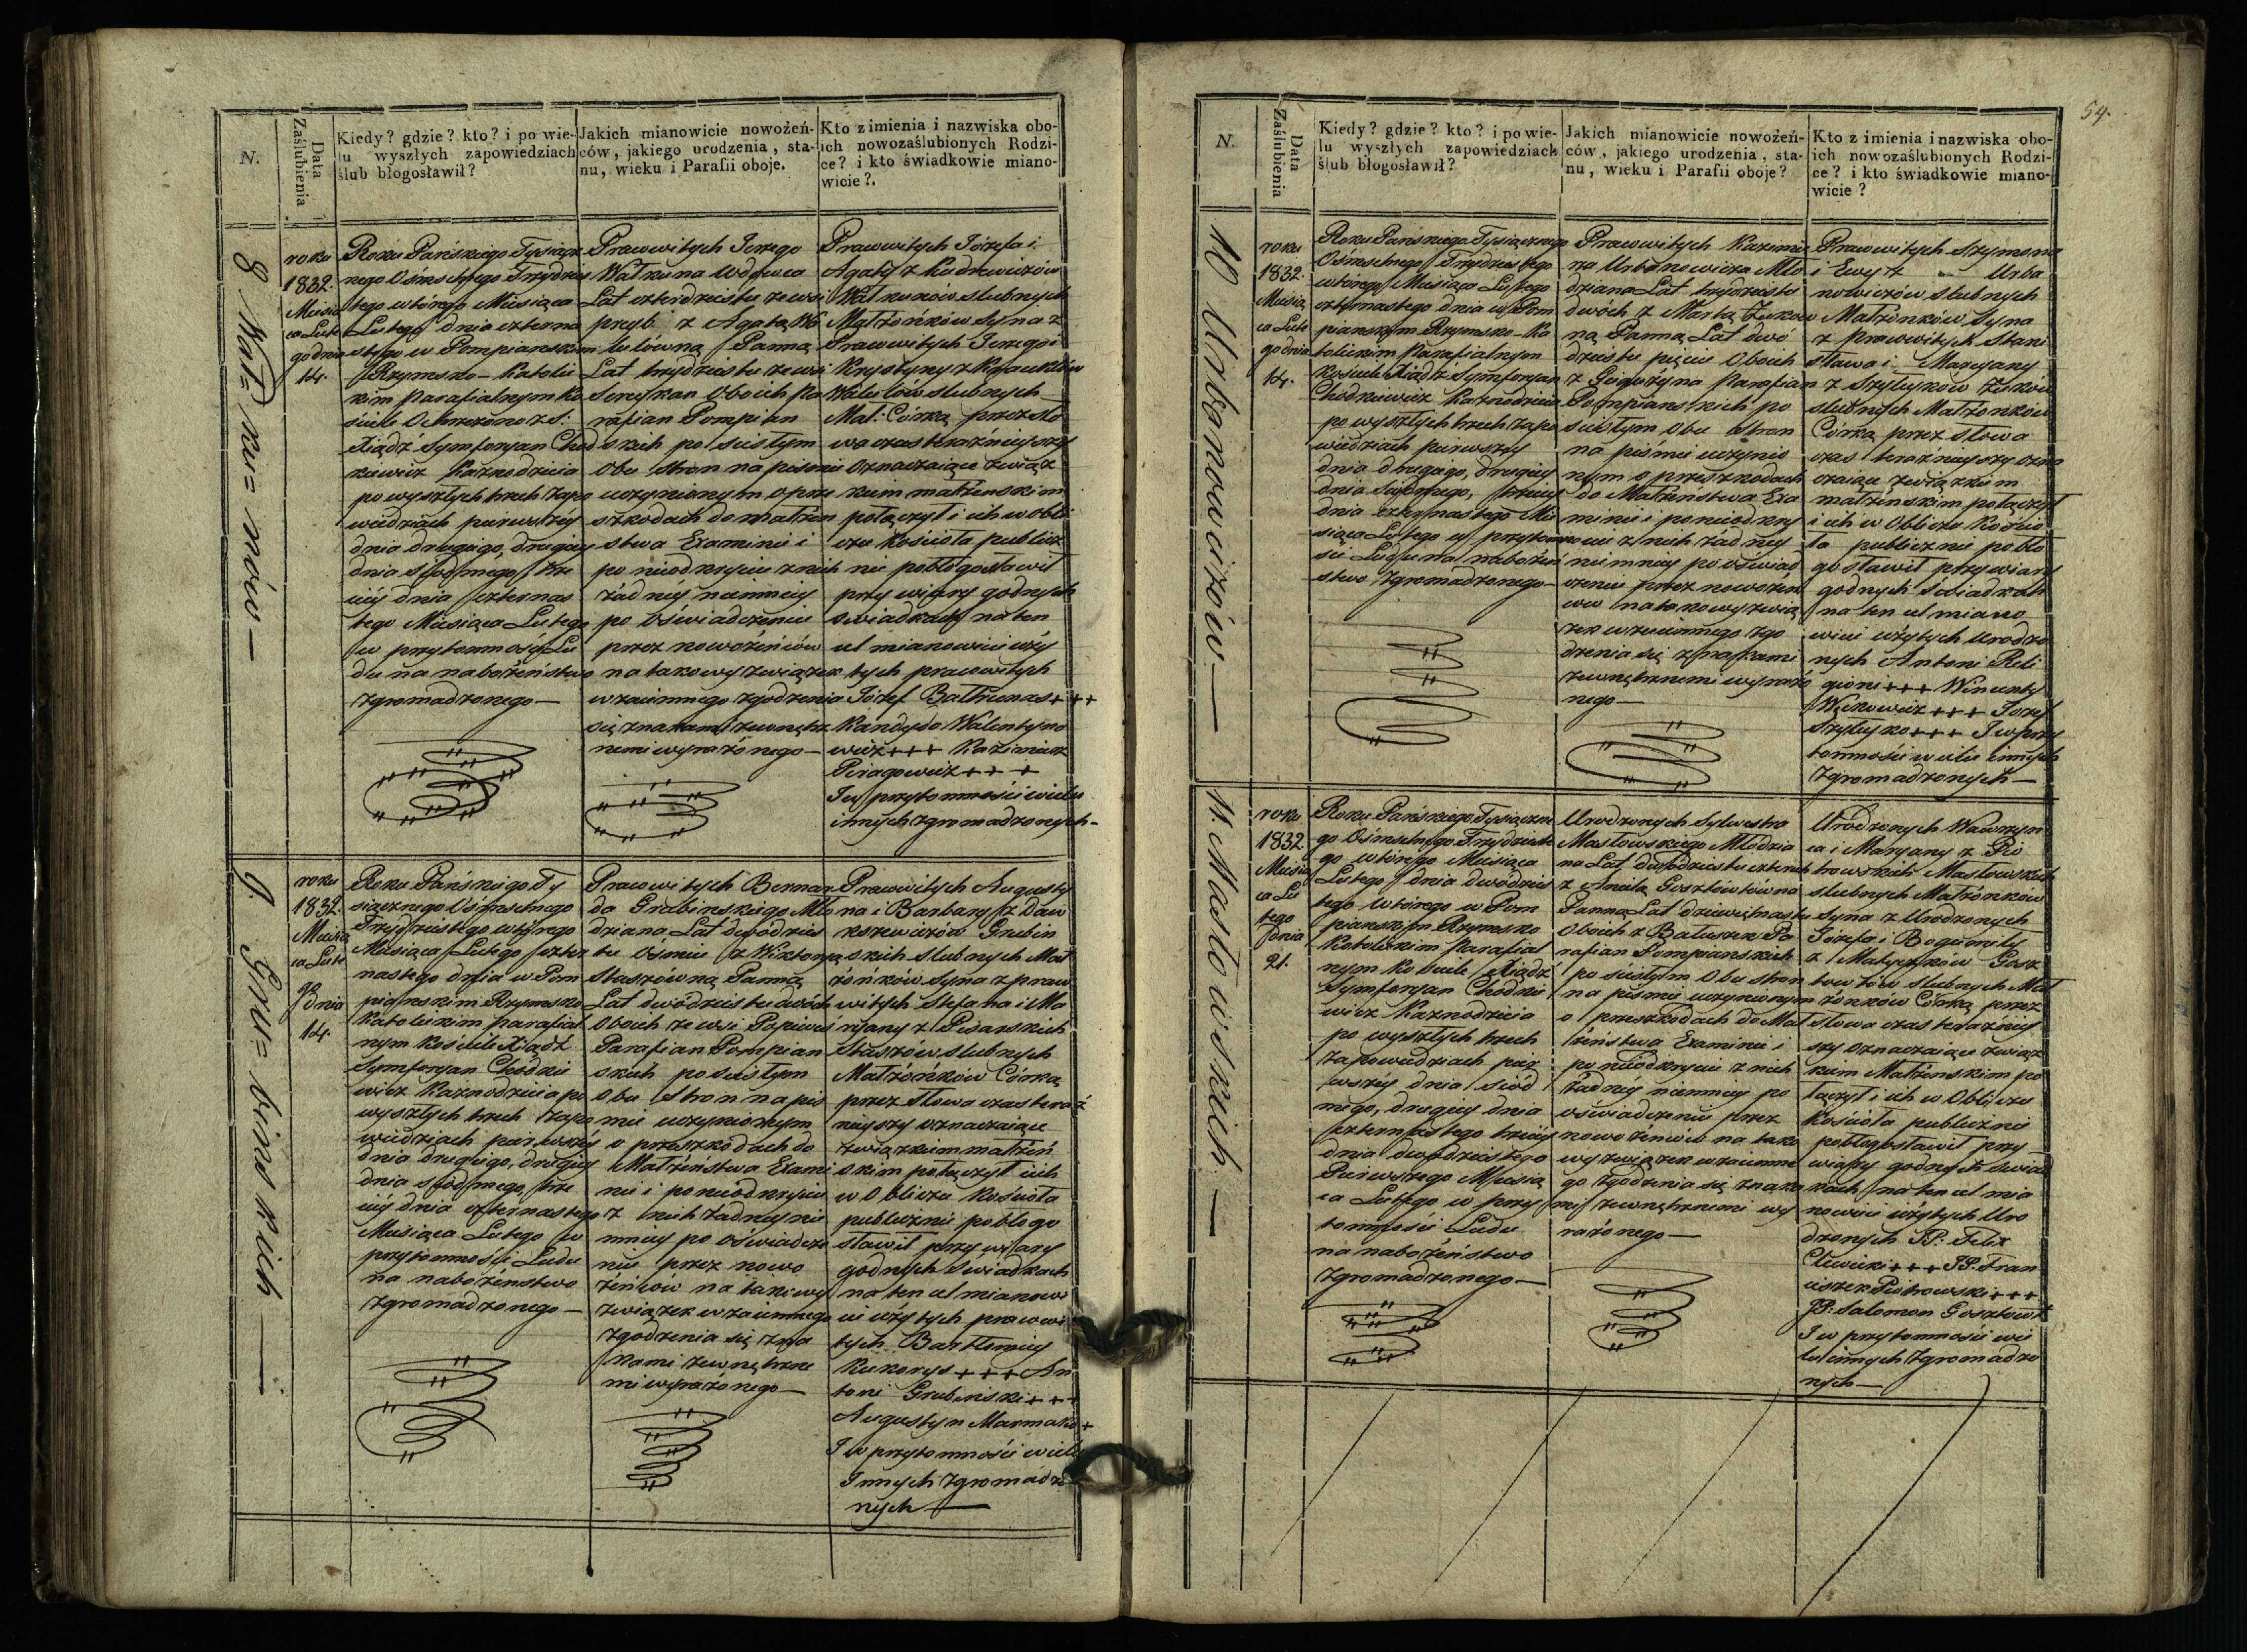 N.
Data
Zaślubienia
Kiedy? gdzie? kto? i po wie-
lu wyszłych zapowiedziach
ślub błogosławił?
Jakich mianowicie nowożeń-
ców, jakiego urodzenia, sta-
nu, wieku i Parafii oboje.
Kto z imienia i nazwiska obo-
ich nowozaślubionych Rodzi-
ce? i kto świadkowie miano-
wicie?.
8
roku
1832.
Miesią
ca Lute
go dnia
14.
Roku Pańskiego Tysiącz
nego Ośmsetnego Trzydzies
tego wtórego Miesiąca
Lutego dnia czterna
stego w Pompianskim
Rzymsko-Katolic
kim Parafialnym Ko
ściele Ochrzczono z S.
Xiądz Symforyan Chod
kiewicz Kaznodzieia
po wyszłych trzech zapo
wiedziach pierwszéy
dnia drugiego, drugiey
dnia siódmego, trze
ciéy dnia czternas
tego Miesiąca Lutego
w przytomności Lu
du na nabożeństwo
zgromadzonego —
Pracowitych Jerzego
Watkuna Wdowca
Lat czterdziestu ze wsi
z Agatą Wo
lutówną Panną
Lat trzydziestu ze wsi
Oboich Pa
rafian Pompian
skich po ścisłym
Obu Stron na pismie
uczynionym o prze
szkodach do małżeń
stwa Examinie i
po nieodkryciu z nich
żadnéy niemniéy
po oświadczeniu
przez nowożeńców
na takowy związek
wzaiemnego zgodzenia
się znakami zewnętrz
nemi wyrażonego —
Pracowitych Józefa i
Agaty z Kudrewiczów
Watkunów slubnych
Małżonków Syna z
Pracowitych Jerzego i
Krystyny z
slubnych
Mał: Córką przez sło
wa czas teraźnieyszy
oznaczaiące związ
kiem małżenskim
połączył i ich w obli
czu Kościoła publicz
nie pobłogosławił
przy wiary godnych
swiadkach na ten
cel mianowicie uży
tych pracowitych
Józef Baltrunas +++
Kandydo Walentyno
wicz +++ Kazimierz
Piragowicz +++
I w przytomności wielu
innych zgromadzonych —
9.
Gru=bins kich —
roku
1832.
Miesią
ca Lute
go
dnia
14.
Roku Pańskiego Ty
siącznego Ośmsetnego
Trzydziestego wtórego
Miesiąca Lutego czter
nastego dnia w Pom
pianskim Rzymsko
Katolickim parafial
nym Kościele Xiądz
Symforyan Chodkie
wicz Kaznodzieia po
wyszłych trzech zapo
wiedziach pierwszéy
dnia drugiego, drugiey
dnia siódmego, trze
ciéy dnia czternastego
Miesiąca Lutego w
przytomności Ludu
na nabożenstwo
zgromadzonego —
Pracowitych Bernar
da Grabinskiego Mło
dziana Lat dwódzies
tu ośmiu z Wiktoryą
Staszówną Panną
Lat dwódziestu dwóch
Oboich ze wsi
Parafian Pompian
skich po ścisłym
Obu Stron na pis
mie uczynionym
o przeszkodach do
Małżeństwa Exami
nie i po nieodkryciu
z nich żadney nie
mniey po oświadcze
niu przez nowo
żeńców na takowy
związek wzaiemnego
zgodzenia się zna
kami zewnętrzne
mi wyrażonego —
Pracowitych Augusty
na i Barbary z Daw
kszewiczów Grubin
skich slubnych Mał
żonków Syna z praw
witych Stefana i Ma
ryany z Pisarskich
Staszów slubnych
Małżonków Córką
przez słowa czas teraź
nieyszy oznaczaiące
związkiem małżeń
skim połączył i ich
w Obliczu Kościoła
publicznie pobłogo
sławił przy wiary
godnych świadkach
na ten cel mianow
cie użytych pracowi
tych Bartłomiéy
Kukorys +++ An
toni Grubinski +++
Augustyn Marmaka +
I w przytomności wielu
Innych zgromadzo
nych —
54.
N.
Data
Zaślubienia
Kiedy? gdzie? kto? i po wie-
lu wyszłych zapowiedziach
ślub błogosławił?
Jakich mianowicie nowożeń-
ców, jakiego urodzenia, sta-
nu, wieku i Parafii oboje?
Kto z imienia i nazwiska obo-
ich nowozaślubionych Rodzi-
ce? i kto świadkowie miano-
wicie?
10 Urbanowiczów —
roku
1832.
Miesią
ca Lute
go dnia
14.
Roku Pańskiego Tysiącznego
Ośmsetnego Trzydziestego
wtórego Miesiąca Lutego
czternastego dnia w Pom
pianskym Rzymsko-Ka
tolickim Parafialnym
Kościele Xiądz Symforyan
Chodkiewicz Kaznodzieia
po wyszłych trzech zapo
wiedziach pierwszéy
dnia drugiego, drugiey
dnia siódmego, trzeciey
dnia czternastego Mie
siąca Lutego w przytomno
ści Ludu na nabożeń
stwo zgromadzonego —
Pracowitych Kazimie
rza Urbanowicza Mło
dziana Lat trzydziestu
dwóch z Martą
ną Panną Lat dwó
dziestu pięciu Oboich
z Giegużyna Parafian
Pompianskich po
ścisłym Obu Stron
na piśmie uczynio
nym o przeszkodach
do Małżeństwa Exa
minie i po nieodkry
ciu z nich żadney
niemniey po oświad
czeniu przez nowożeń
ców na takowy zwią
zek wzaiemnego zgo
dzenia się znakami
zewnętrznemi wyrażo
nego —
Pracowitych Szymona
i Ewy z Urba
nowiczów slubnych
Małżonków Syna
z pracowitych Stani
sława i Maryany
z Szyleyków
slubnych Małżonków
Córką przez słowa
czas teraźnieyszy ozna
czaiące związkiem
małżenskim połączył
i ich w Obliczu Kościo
ła publicznie pobło
gosławił przy wiary
godnych Swiadkach
na ten cel miano
wicie użytych Urodzo
nych Antoni Reli
gioni +++ Wincenty
+++ Jozef
Szyleyko +++ I w przy
tomności wielu innych
zgromadzonych —
11. Masłowskich —
roku
1832
Miesią
ca Lu
tego
dnia
21.
Roku Pańskiego Tysiączne
go Ośmsetnego Trzydzieste
go wtórego Miesiąca
Lutego dnia dwódzies
tego wtórego w Pom
pianskim Rzymsko
Katolickim Parafial
nym Kościele Xiądz
Symforyan Chodkie
wicz Kaznodzieia
po wyszłych trzech
zapowiedziach pier
wszéy dnia siód
mego, drugiey dnia
czternastego trzeciéy
dnia dwódziestego
Pierwszego Miesią
ca Lutego w przy
tomności Ludu
na nabożeństwo
zgromadzonego —
Urodzonych Sylwestra
Masłowskiego Młodzia
na Lat dwódziestu czterech
z Anielą Gosztowtówna
Panną Lat dziewiętnastu
Oboich z Batuszek Pa
rafian Pompianskich
po ścisłym Obu stron
na piśmie uczynionym
o przeszkodach do Mał
żeństwa Examinie i
po nieodkryciu z nich
żadnéy niemniey po
oświadczeniu przez
nowożeńców na tako
wy związek wzaiemne
go zgodzenia się znaka
mi zewnętrznemi wy
rażonego —
Urodzonych Wawrzyn
ca i Maryany z Pio
trowskich Masłowskich
slubnych Małżonków
Syna z Urodzonych
Józefa i Bogumiły
z Matyszków Gosz
towtów slubnych Mał
żonków Córką przez
słowa czas teraźniey
szy oznaczaiące związ
kiem Małżenskim po
łączył i ich w Obliczu
Kościoła publicznie
pobłogosławił przy
wiary godnych swiad
kach na ten cel mia
nowicie użytych Uro
dzonych JP: Felix
+++ JP. Fran
ciszek Piotrowski +++
JP: Salomon Gosztowt
I w przytomności wie
lu innych zgromadzo
nych —